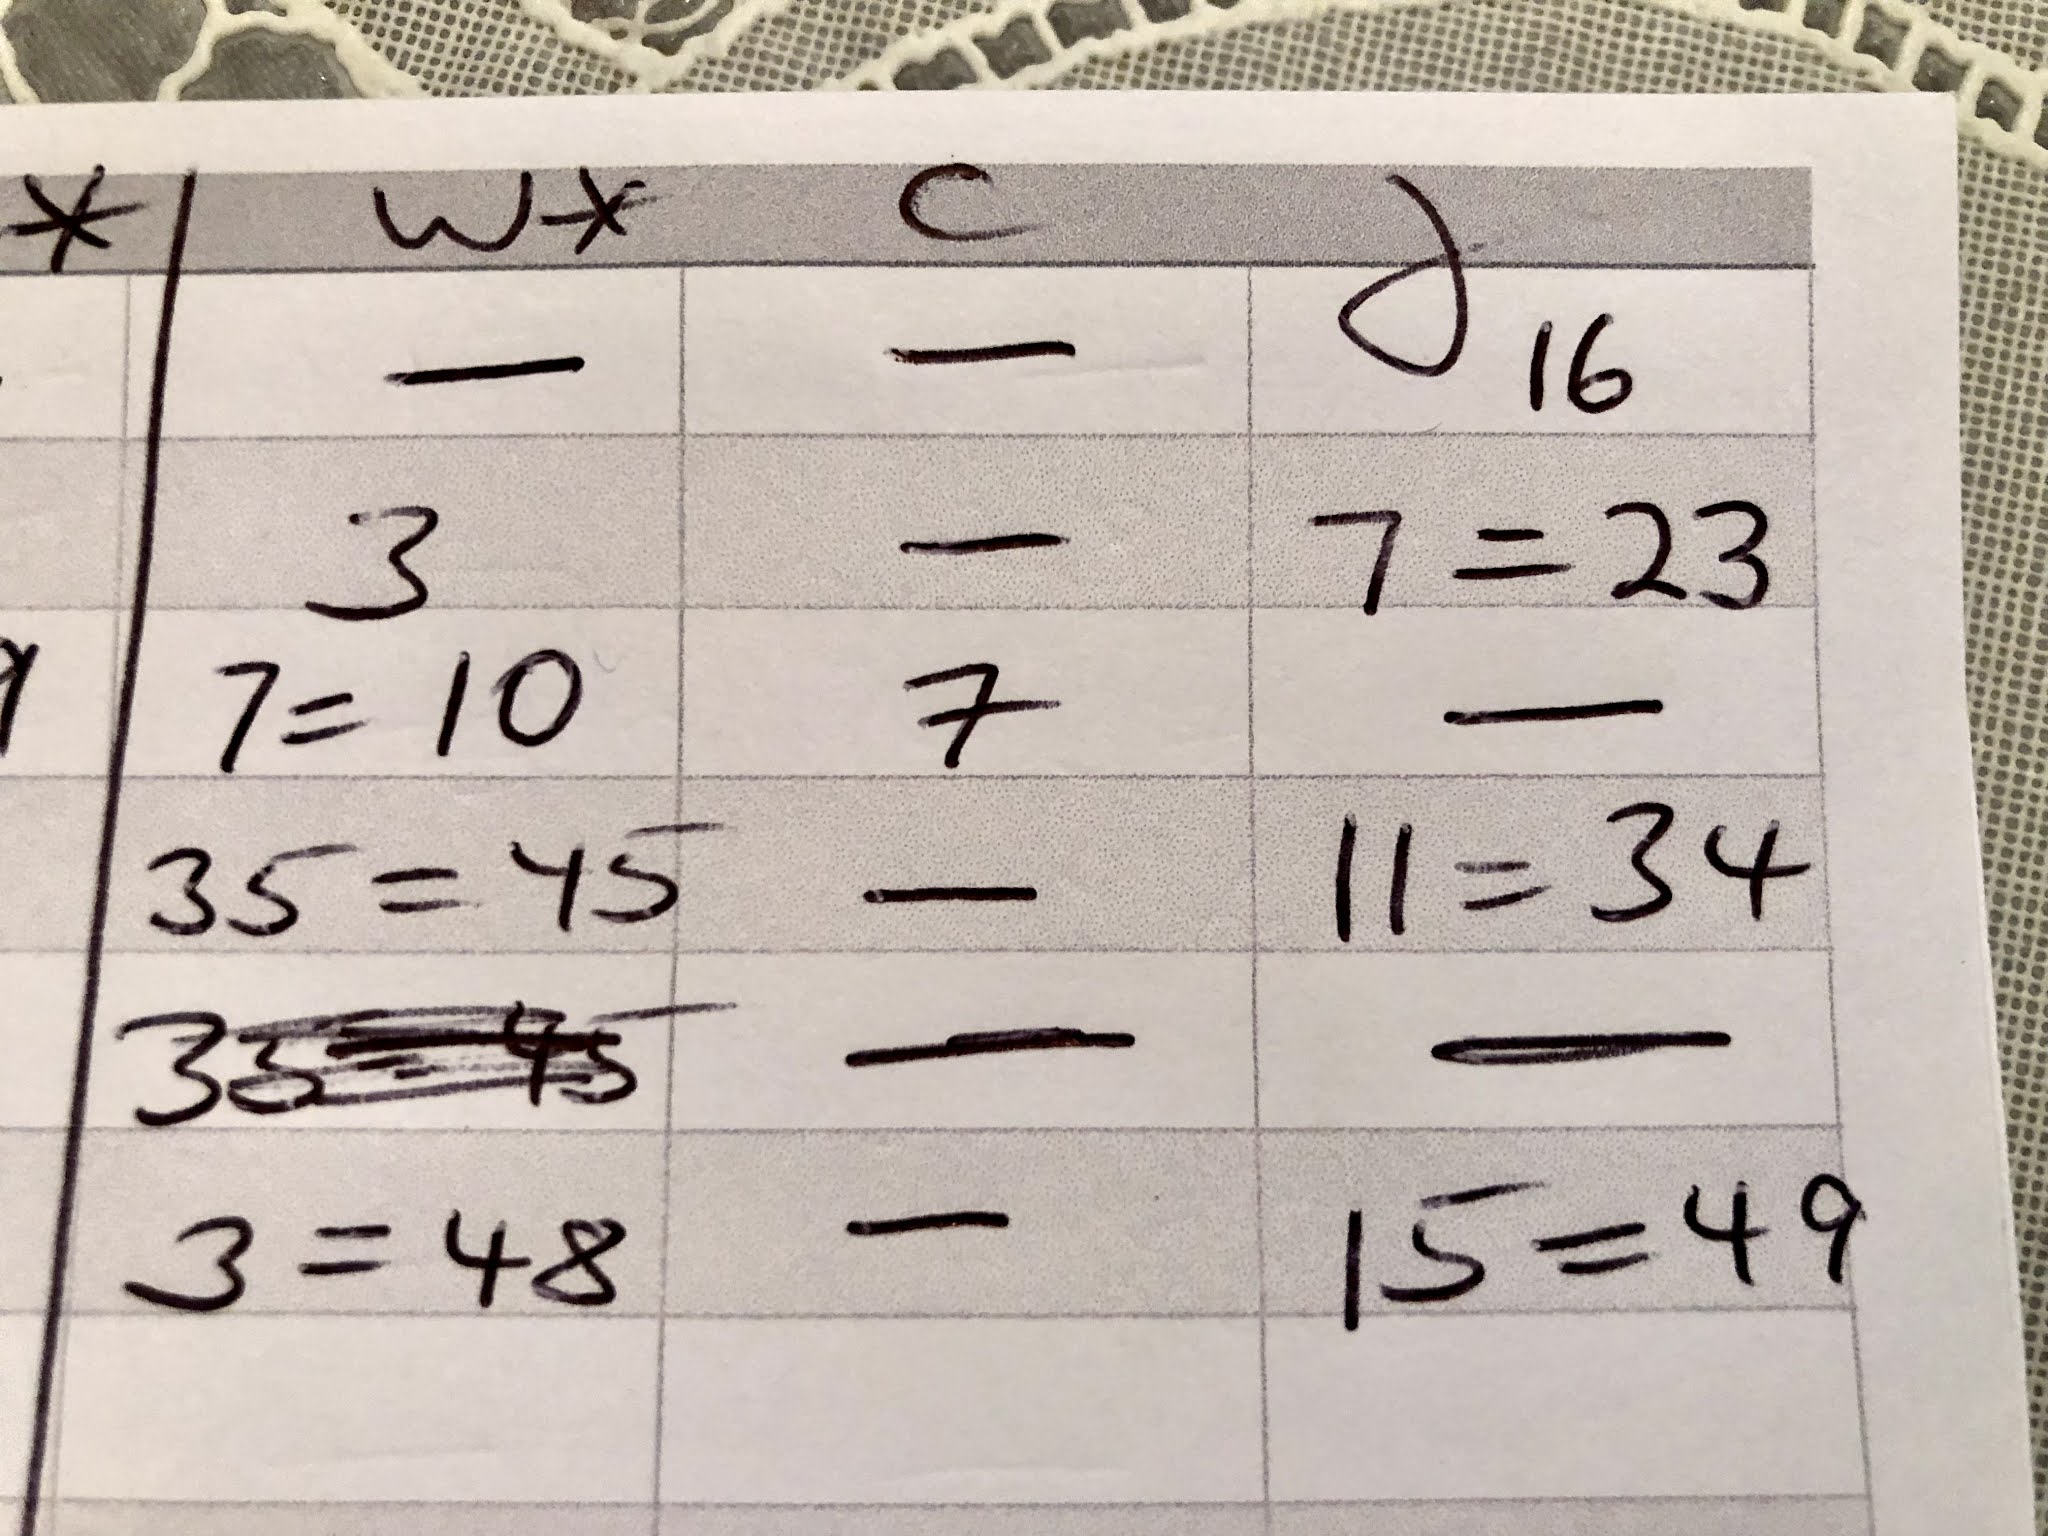 * W* C J
— — 16
3 — 7 = 23
7 = 10 7 —
35 = 45 — 11 = 34
35 = 45 — —
3 = 48 — 15 = 49